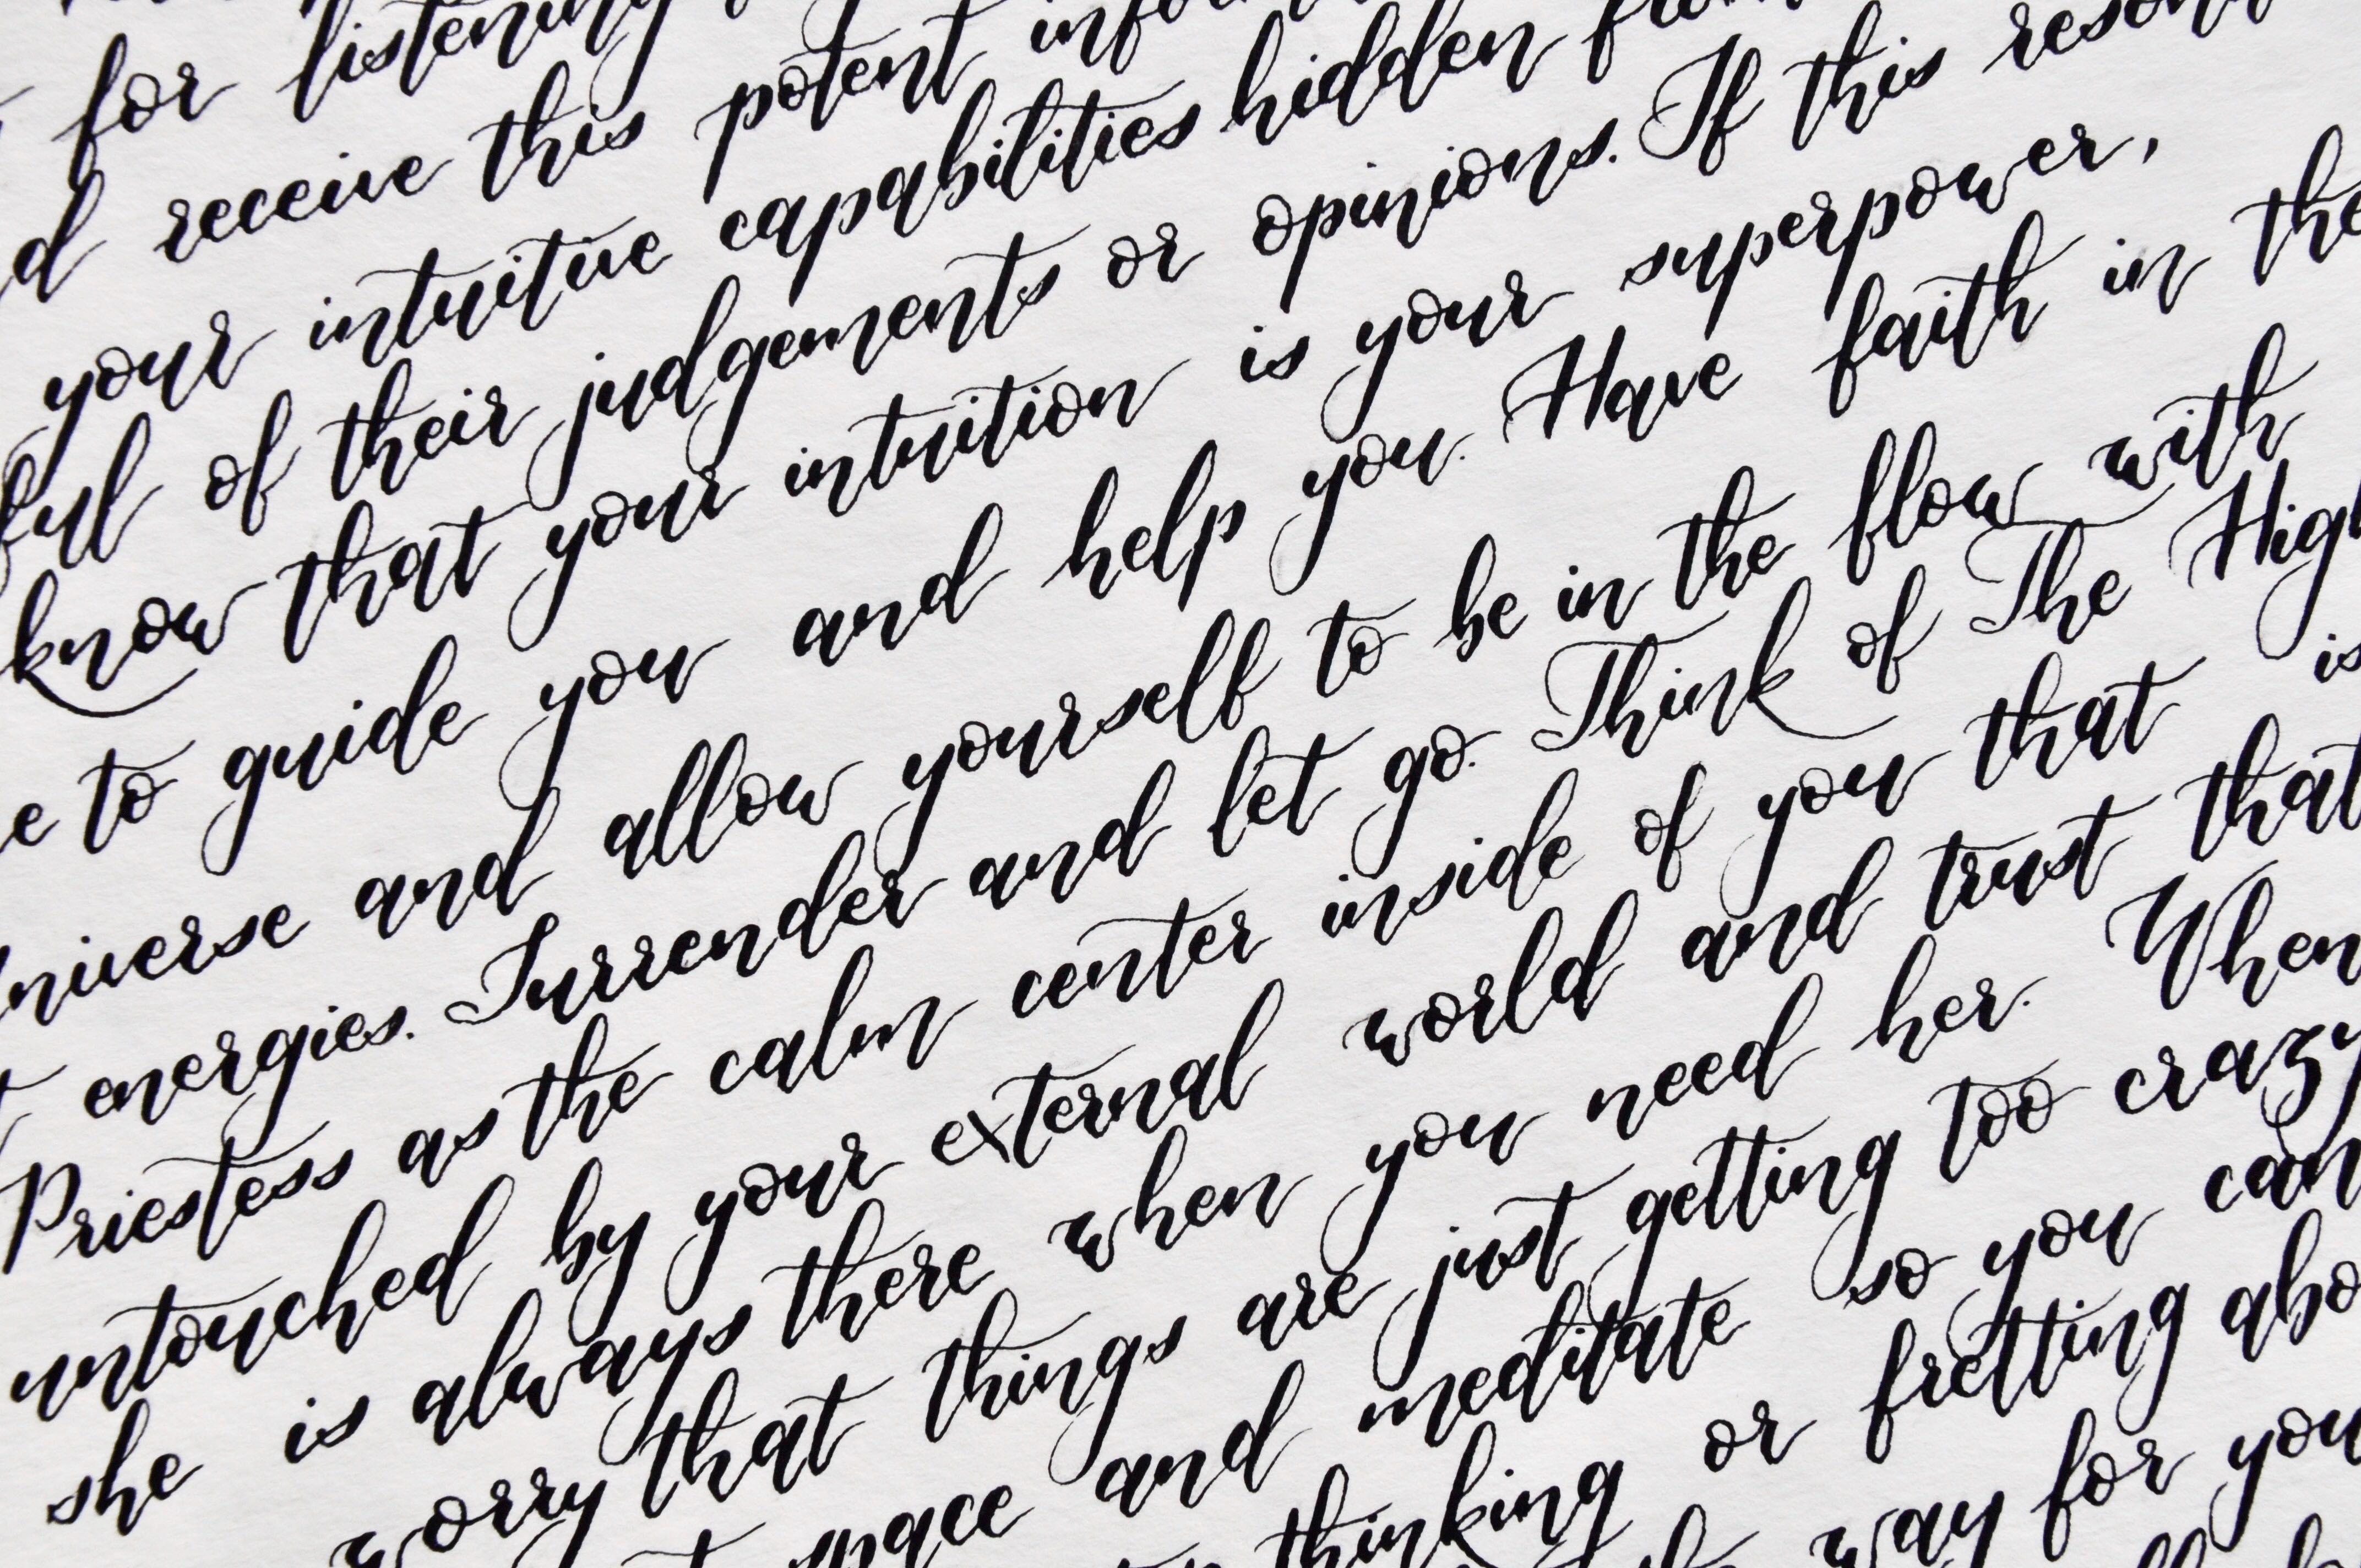 for listening
d receive this potent infor
your intuitive capabilities hidden
ful of their judgements or opinions. If this reson
know that your intuition is your superpower,
e to guide you and help you. Have faith in the
niverse and allow yourself to be in the flow with
t energies. Surrender and let go. Think of The High
Priestess as the calm center inside of you that is
untouched by your external world and trust that
she is always there when you need her. When
worry that things are just getting too crazy
space and meditate so you can
thinking or fretting abo
way for you